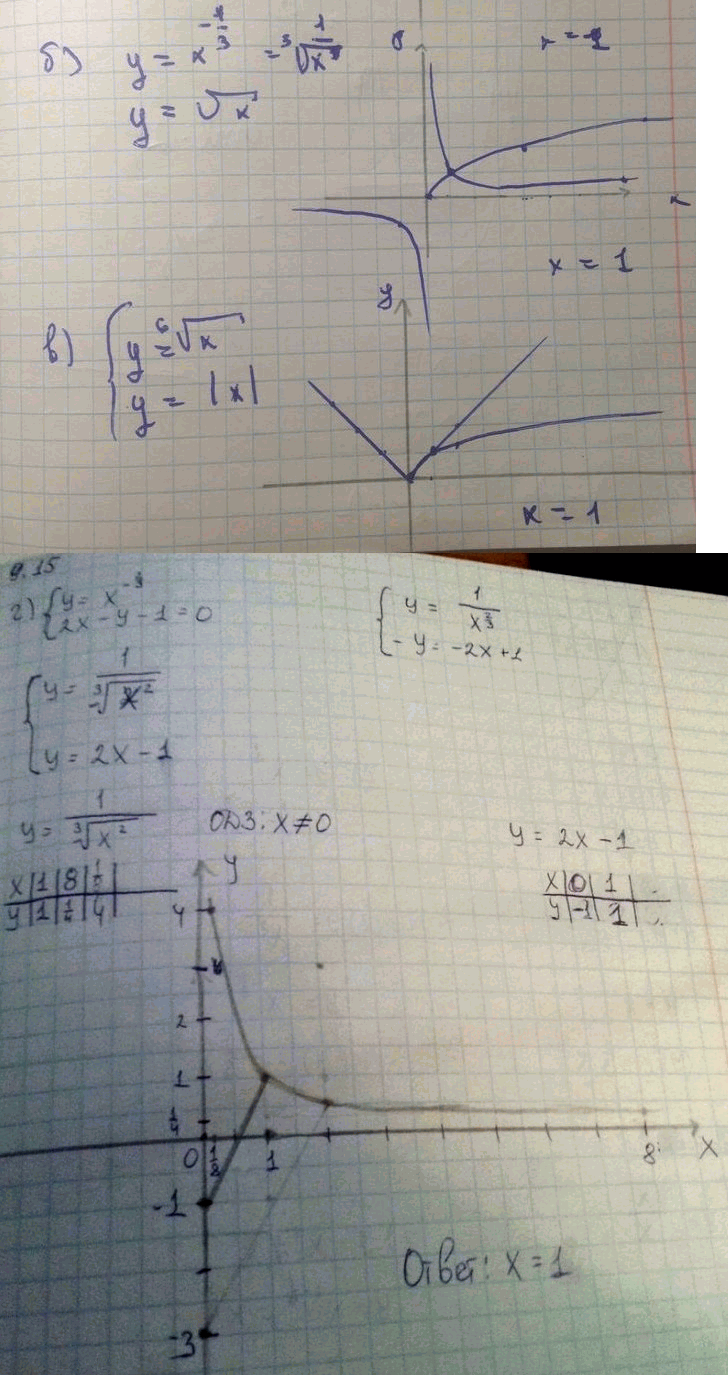 б) y = x^{-1/3} = ∛(1/x)
y = √x
x = 1
в) { y = ⁶√x
y = |x|
y
x = 1
9.15
г) { y = x
2x - y - 1 = 0
{ y = 1/x^{2/3}
- y = -2x + 1
{ y = 1/∛x²
y = 2x - 1
y = 1/∛x²
ОДЗ: x ≠ 0
y = 2x - 1
x | 1 | 8 |
y | 1 | 1/4 | 4 |
x | 0 | 1 |
y | -1 | 1 |
y
4
2
1
1/4
0 1/8 1 8 x
-1
-3
Ответ: x = 1